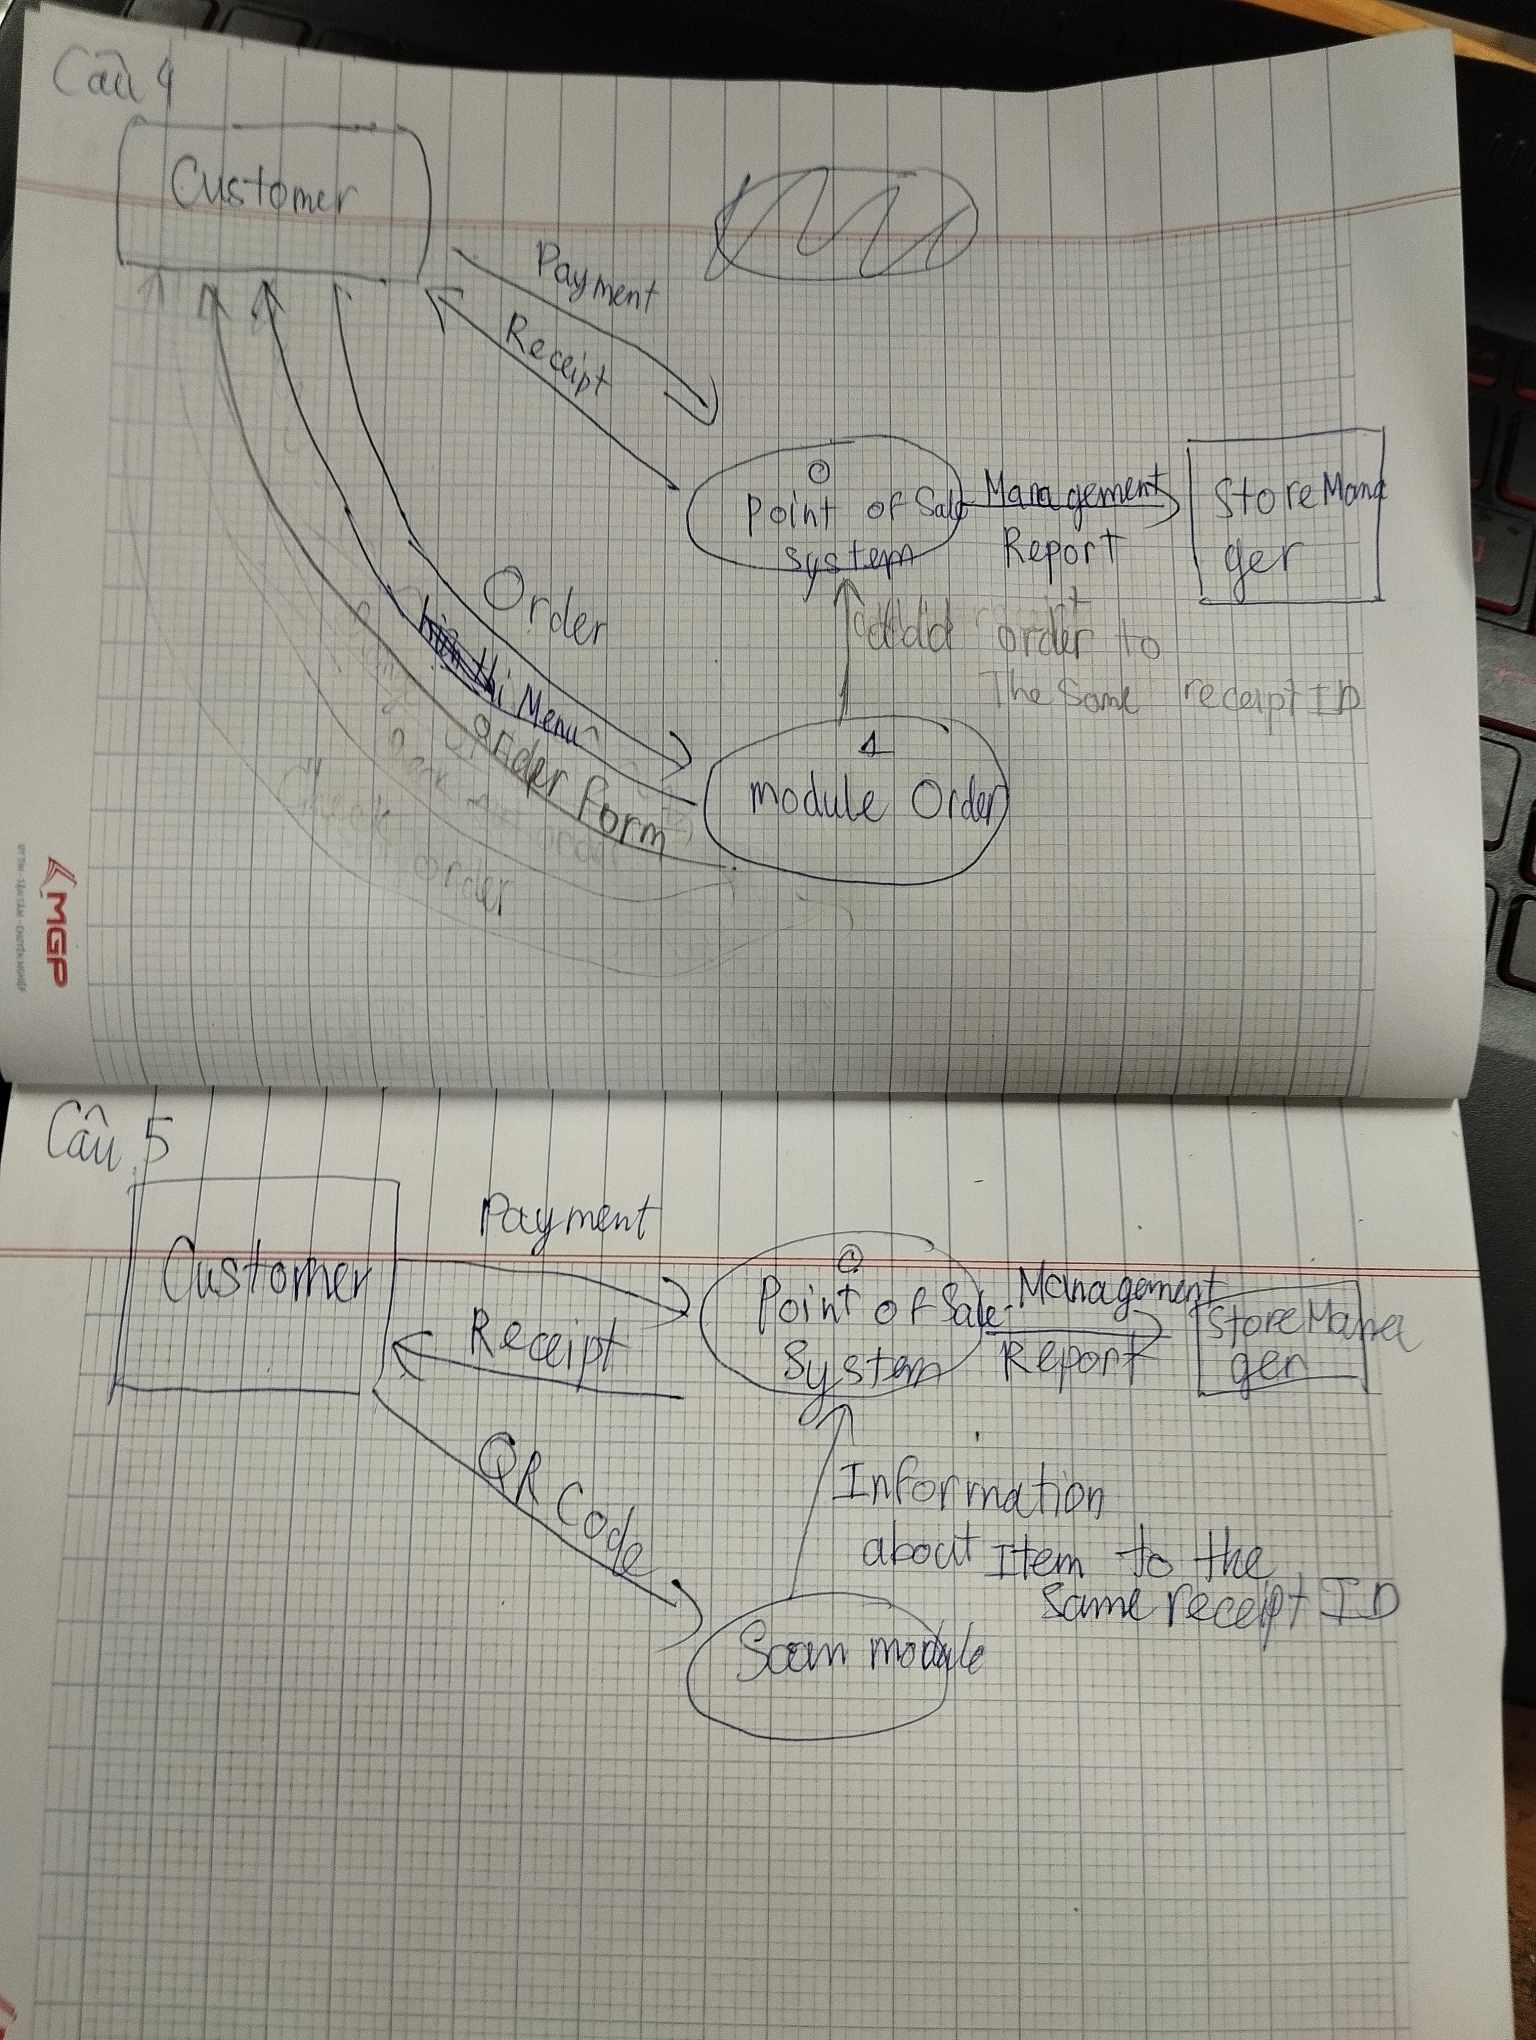 Câu 4
Customer
Payment
Receipt
0
Point of Sale
system
Management
Report
Store Mana
ger
Order
order to
The same receipt ID
Menu
Order Form
1
module Order
Check
order
MGP
Câu 5
Customer
Payment
Receipt
0
Point of Sale
System
Management
Report
Store Mana
ger
QR Code
Information
about Item to the
same receipt ID
Scan module